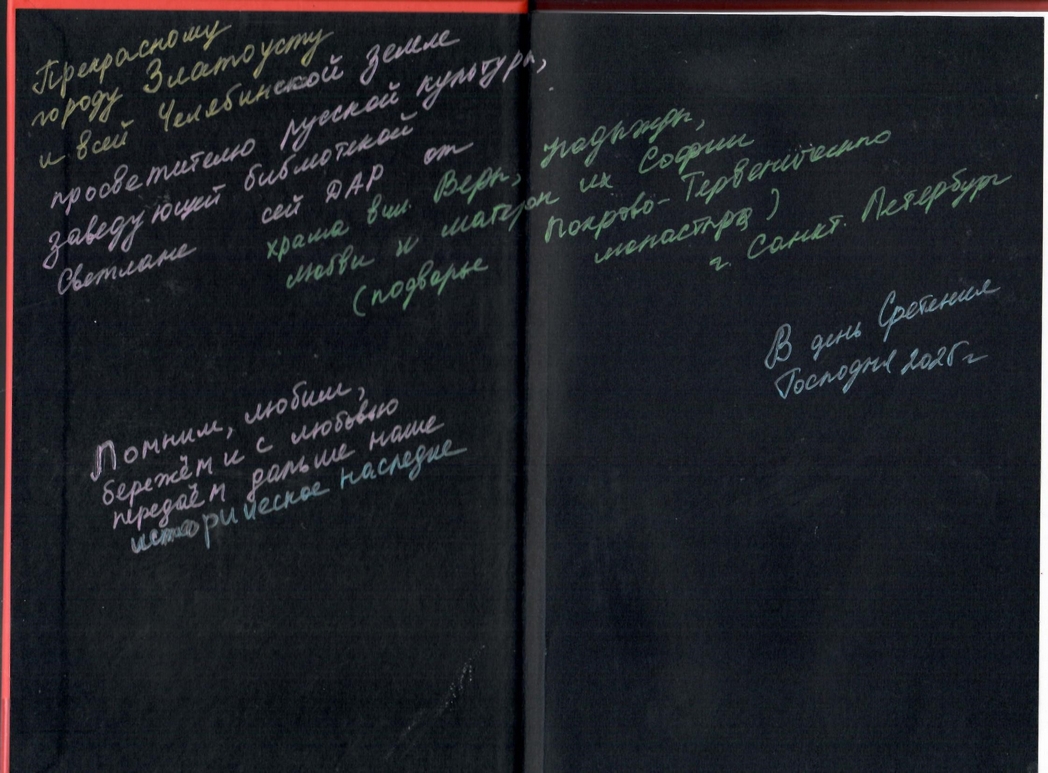 Прекрасному
городу Златоусту
и всей Челябинской земле
просветителю русской культуры,
заведующей библиотекой
Светлане сей ДАР от
храма вмч. Веры, Надежды,
Любви и матери их Софии
(подворье Покрово-Тервенического
монастыря)
г. Санкт. Петербург
В день Сретения
Господня 2025 г
Помним, любим,
бережём и с любовью
передаём дальше наше
историческое наследие